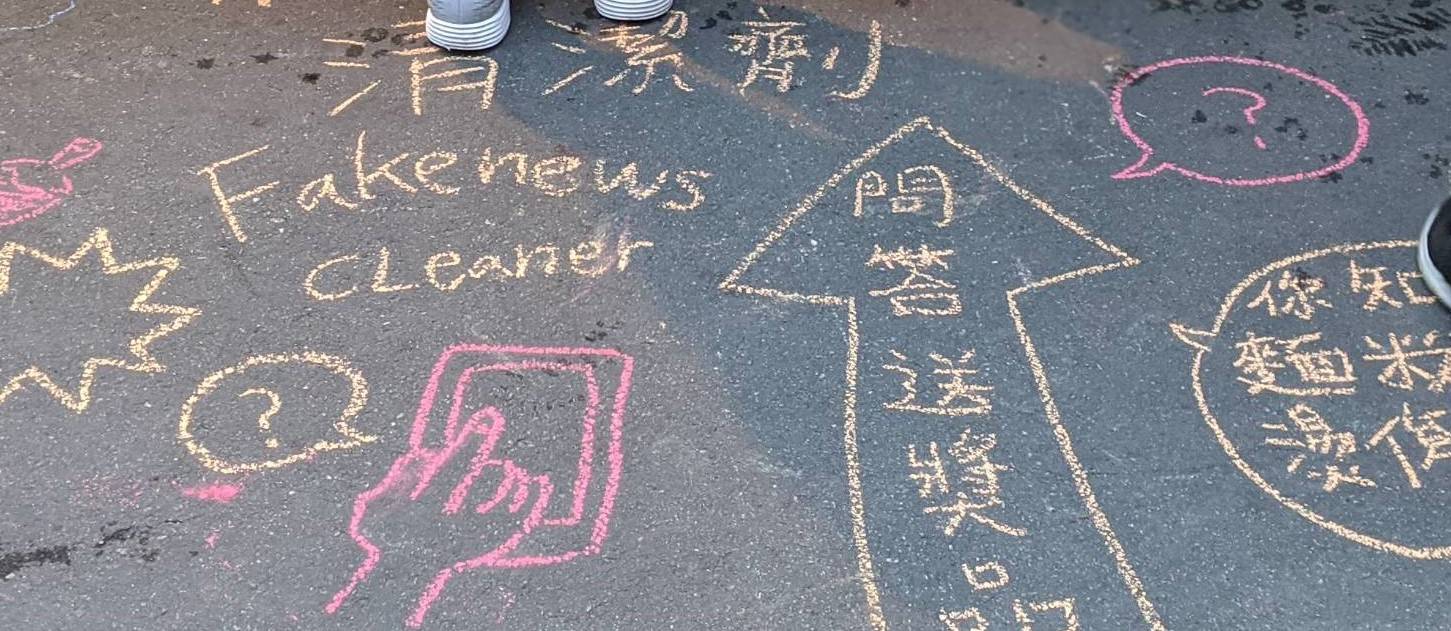 清潔劑
Fakenews
cLeaner
?
?
問
答
送
獎
品
你知
麵粉
燙傷